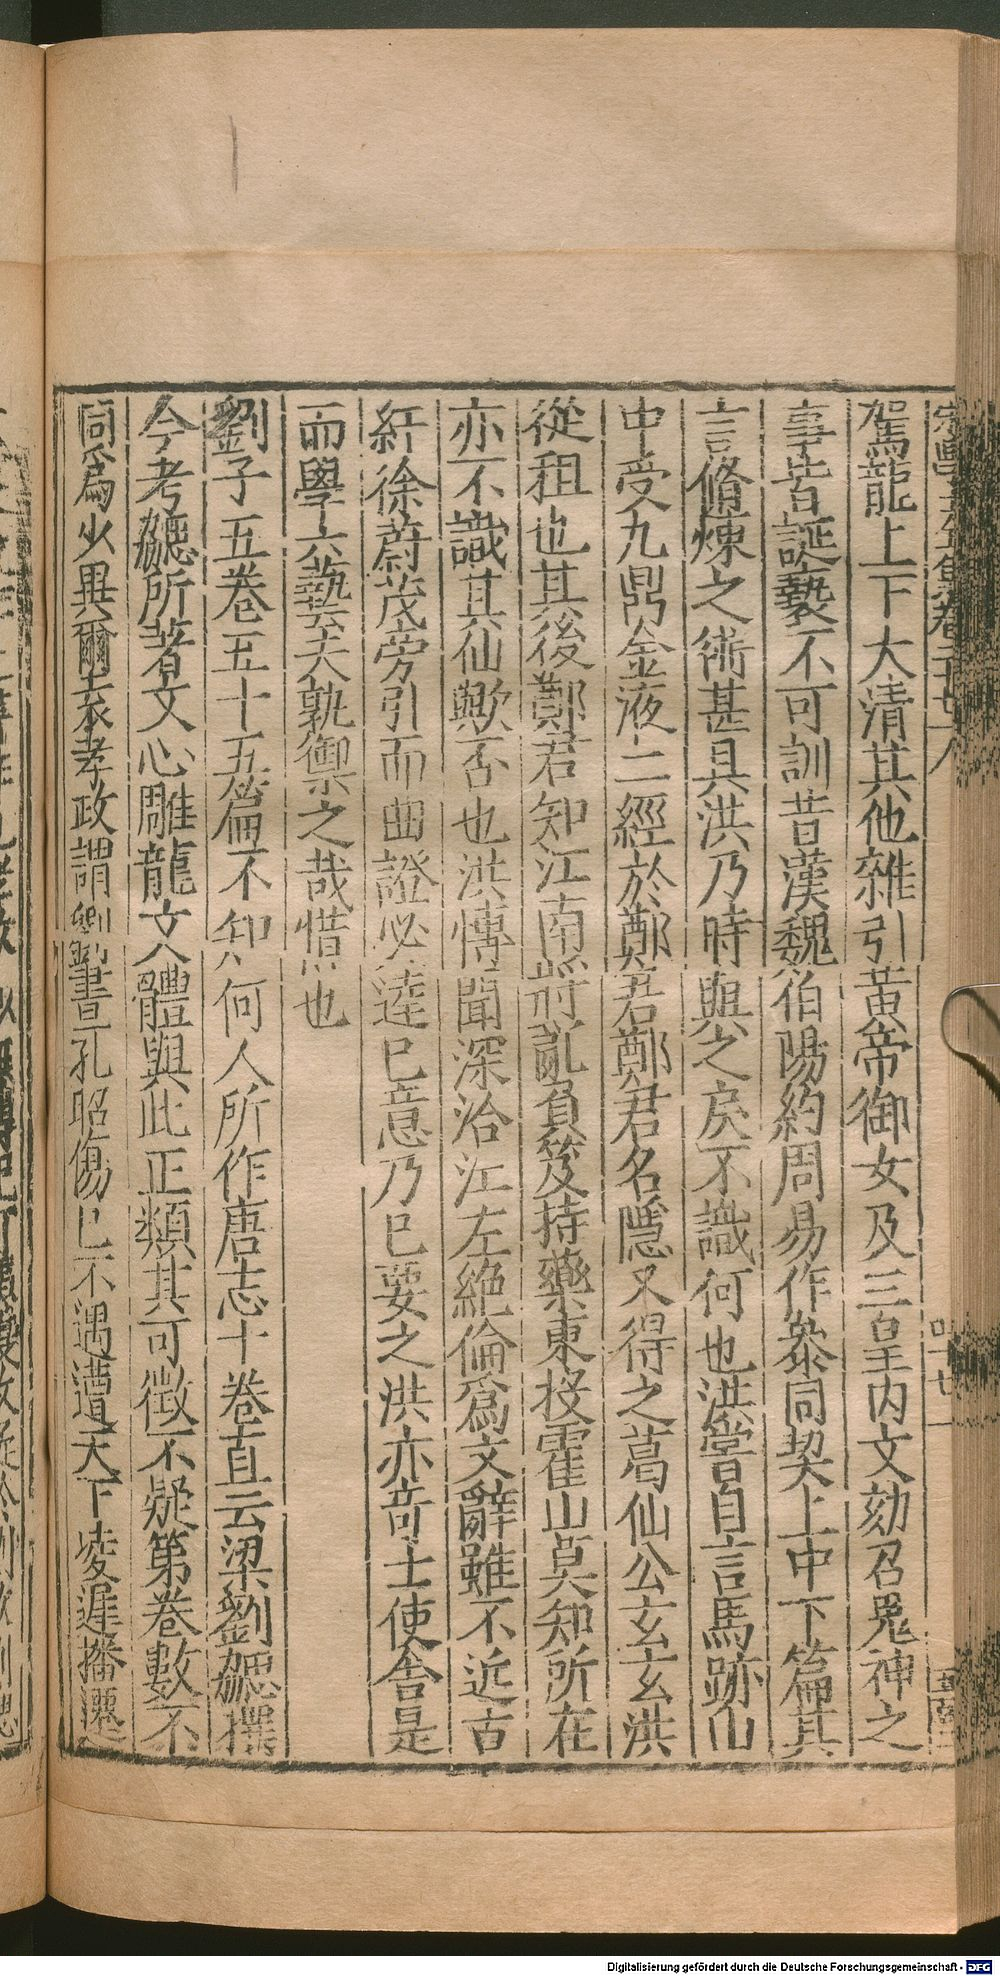 宋學士全集卷二十七 八
駕龍上下大清其他雜引黃帝御女及三皇內文劾召鬼神之
事皆誕褻不可訓昔漢魏伯陽約周易作參同契上中下篇其
言脩煉之術甚具洪乃時與之戾不識何也洪嘗自言馬跡山
中受九鼎金液二經於鄭君鄭君名隱又得之葛仙公玄玄洪
從祖也其後鄭君知江南將亂負笈持藥東投霍山莫知所在
亦不識其仙歟否也洪博聞深洽江左絕倫爲文辭雖不近古
紆徐蔚茂旁引而曲證必達已意乃已要之洪亦奇士使舍是
而學六藝夫孰禦之哉惜也
劉子五卷五十五篇不知何人所作唐志十卷直云梁劉勰撰
今考勰所著文心雕龍文體與此正類其可徵不疑第卷數不
同爲少異爾袁孝政謂劉晝孔昭傷已不遇遭天下凌遲播遷
Digitalisierung gefördert durch die Deutsche Forschungsgemeinschaft - DFG